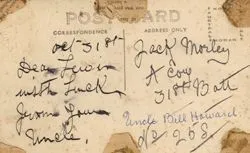 POST CARD
CORRESPONDENCE
ADDRESS ONLY
Oct 31st
Dear Lewis
with Luck
from Your
Uncle.
Jack Morley
A Coy
31st Batt
Uncle Bill Howard.